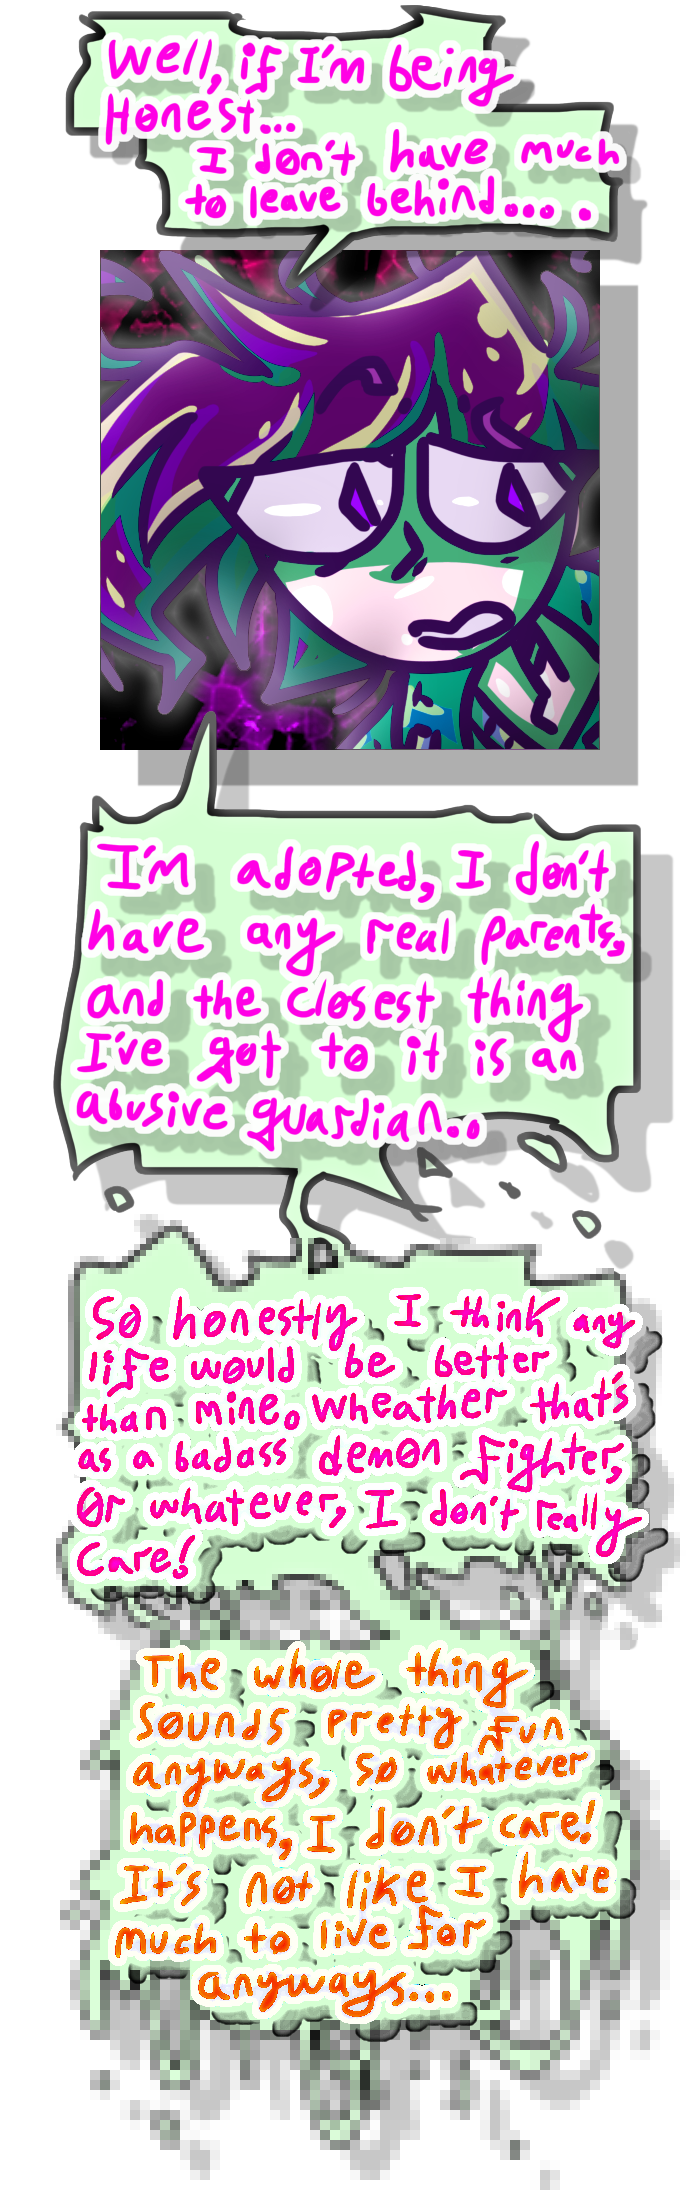 Well, if I'm being
Honest...
I don't have much
to leave behind.... .
I'm adopted, I don't
have any real parents,
and the closest thing
I've got to it is an
abusive guardian..
So honestly I think any
life would be better
than mine. Wheather that's
as a badass demon fighter,
Or whatever, I don't really
Care!
The whole thing
Sounds pretty fun
anyways, so whatever
happens, I don't care!
It's not like I have
much to live for
anyways...